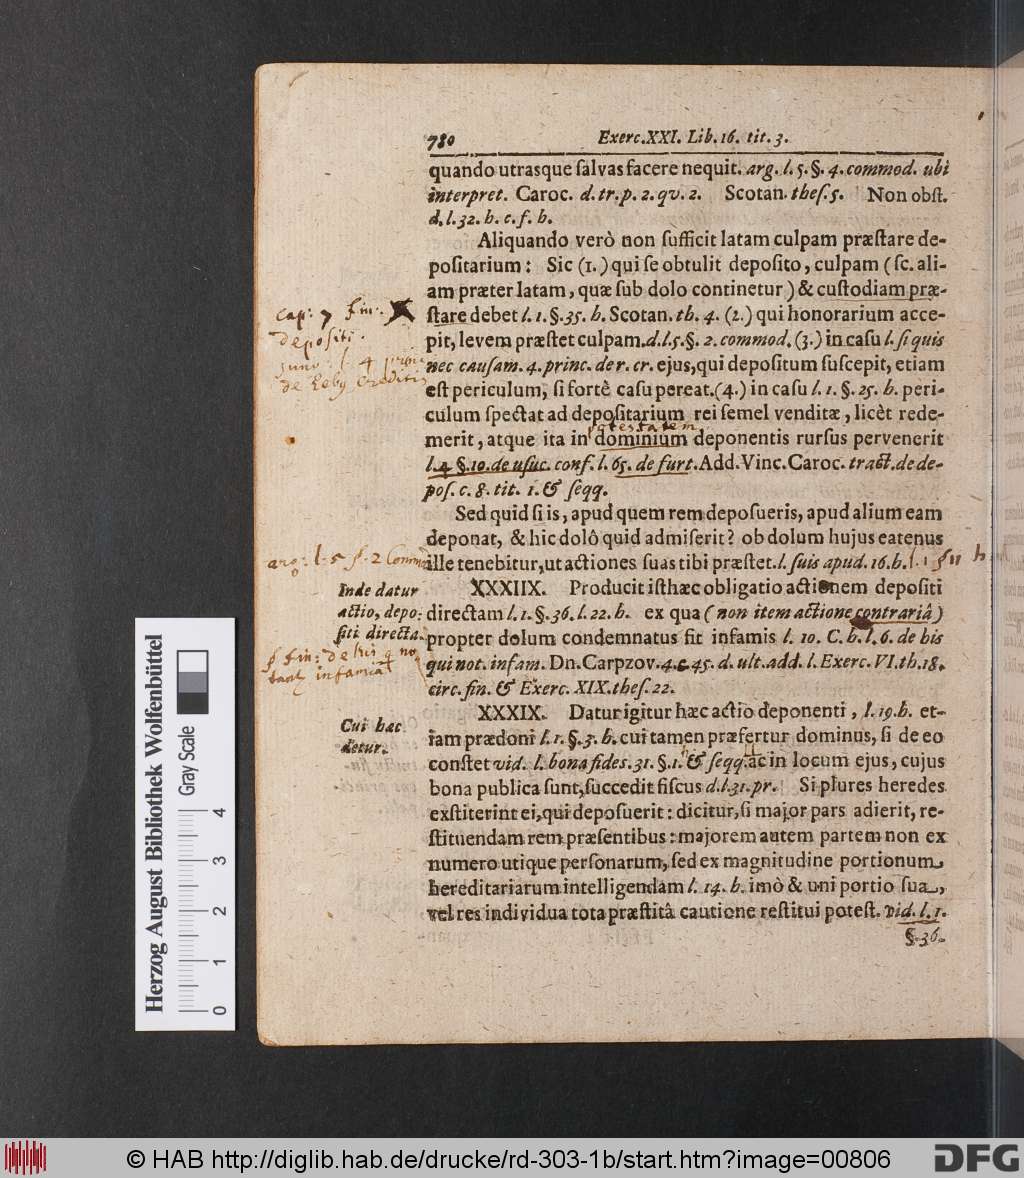 780 Exerc. XXI. Lib. 16. tit. 3.
quando utrasque ſalvas facere nequit. arg. l. 5. §. 4. commod. ubi
interpret. Caroc. d. tr. p. 2. qv. 2. Scotan. theſ. 5. Non obſt.
d. l. 32. h. c. f. h.
Aliquando verò non ſufficit latam culpam præſtare de-
poſitarium: Sic (1.) qui ſe obtulit depoſito, culpam (ſc. ali-
am præter latam, quæ ſub dolo continetur) & cuſtodiam præ-
ſtare debet l. 1. §. 35. h. Scotan. th. 4. (2.) qui honorarium acce-
pit, levem præſtet culpam. d. l. 5. §. 2. commod. (3.) in caſu l. ſi quis
nec cauſam. 4. princ. de r. cr. ejus, qui depoſitum ſuſcepit, etiam
eſt periculum, ſi fortè caſu pereat. (4.) in caſu l. 1. §. 25. h. peri-
culum ſpectat ad depoſitarium rei ſemel venditæ, licèt rede-
potestatem
merit, atque ita in dominium deponentis rurſus pervenerit
l. 4. §. 10. de uſuc. conf. l. 65. de furt. Add. Vinc. Caroc. tract. de de-
poſ. c. 8. tit. 1. & ſeqq.
cap: 7 fin.
depositi.
l. 4
de Reby Creditis
Sed quid ſi is, apud quem rem depoſueris, apud alium eam
deponat, & hic dolô quid admiſerit? ob dolum hujus eatenus
ille tenebitur, ut actiones ſuas tibi præſtet. l. ſuis apud. 16. h. l. 1 § 11 h
arg: l. 5 §. 2 Comm
XXXIIX. Producit iſthæc obligatio actionem depoſiti
directam l. 1. §. 36. l. 22. h. ex qua (non item actione contrariâ)
propter dolum condemnatus fit infamis l. 10. C. h. l. 6. de his
qui not. infam. Dn. Carpzov. 4. c. 45. d. ult. add. l. Exerc. VI. th. 18.
circ. fin. & Exerc. XIX. theſ. 22.
Inde datur
actio, depo-
ſiti directa.
§ fin: de his q no
tant infamia
XXXIX. Datur igitur hæc actio deponenti, l. 19. h. et-
iam prædoni l. 1. §. 3. h. cui tamen præfertur dominus, ſi de eo
conſtet vid. l. bona fides. 31. §. 1. & ſeqq. ac in locum ejus, cujus
bona publica ſunt, ſuccedit fiſcus d. l. 31. pr. Si plures heredes
exſtiterint ei, qui depoſuerit: dicitur, ſi major pars adierit, re-
ſtituendam rem præſentibus: majorem autem partem non ex
numero utique perſonarum, ſed ex magnitudine portionum
hereditariarum intelligendam l. 14. h. imò & uni portio ſua,
vel res individua tota præſtitâ cautione reſtitui poteſt. vid. l. 1.
§. 36.
Cui hæc
detur.
Herzog August Bibliothek Wolfenbüttel
Gray Scale
0 1 2 3 4
© HAB http://diglib.hab.de/drucke/rd-303-1b/start.htm?image=00806
DFG